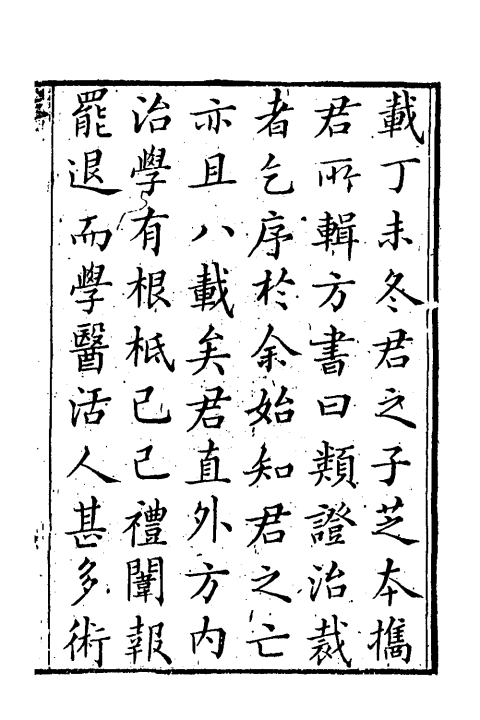 載丁未冬君之子芝本攜
君所輯方書曰類證治裁
者乞序於余始知君之亡
亦且八載矣君直外方内
治學有根柢已己禮闈報
罷退而學醫活人甚多術